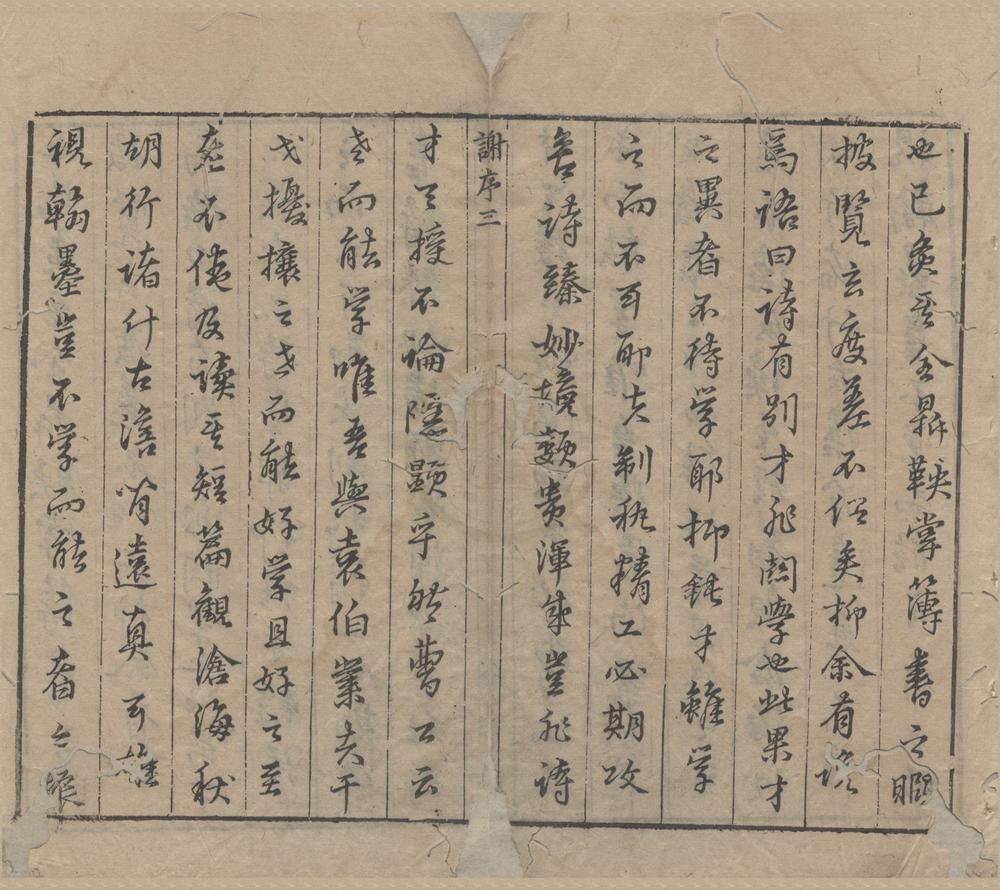 也已矣至金鼎鞅掌簿書之暇
披覽玄度差不俗矣抑余有
焉語曰詩有別才非關學也此果才
之異者不待學耶抑鈍才雖學
之而不可耶夫制秇精工必期攻
苦詩臻妙境顧貴渾成豈非詩
謝序三
才天授不論隱顯乎然曹公云
老而能学唯吾與袁伯業夫干
戈擾攘之老而能好学且好之至
老不倦及讀其短篇觀滄海秋
胡行諸什古澹脩遠真可雄
視翰墨豈不学而能之者